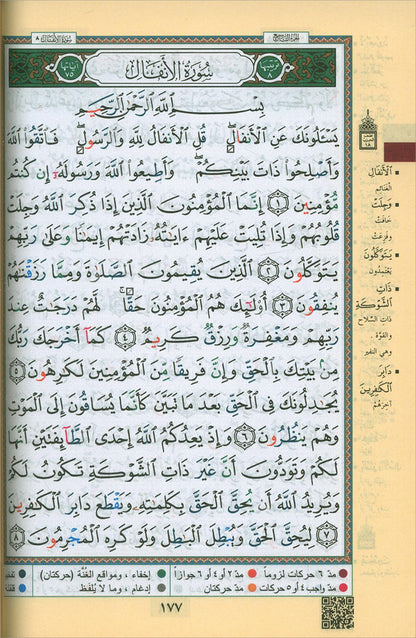 سُورَةُ الأَنْفَال ٨
سُورَةُ الأَنفَالِ
ترتيبها ٨
آياتها ٧٥
بِسْمِ اللَّهِ الرَّحْمَٰنِ الرَّحِيمِ
يَسْـَٔلُونَكَ عَنِ ٱلْأَنفَالِ ۖ قُلِ ٱلْأَنفَالُ لِلَّهِ وَٱلرَّسُولِ ۖ فَٱتَّقُوا۟ ٱللَّهَ
وَأَصْلِحُوا۟ ذَاتَ بَيْنِكُمْ ۖ وَأَطِيعُوا۟ ٱللَّهَ وَرَسُولَهُۥٓ إِن كُنتُم
مُّؤْمِنِينَ ١ إِنَّمَا ٱلْمُؤْمِنُونَ ٱلَّذِينَ إِذَا ذُكِرَ ٱللَّهُ وَجِلَتْ
قُلُوبُهُمْ وَإِذَا تُلِيَتْ عَلَيْهِمْ ءَايَٰتُهُۥ زَادَتْهُمْ إِيمَٰنًا وَعَلَىٰ رَبِّهِمْ
يَتَوَكَّلُونَ ٢ ٱلَّذِينَ يُقِيمُونَ ٱلصَّلَوٰةَ وَمِمَّا رَزَقْنَٰهُمْ
يُنفِقُونَ ٣ أُو۟لَٰٓئِكَ هُمُ ٱلْمُؤْمِنُونَ حَقًّا ۚ لَّهُمْ دَرَجَٰتٌ عِندَ
رَبِّهِمْ وَمَغْفِرَةٌ وَرِزْقٌ كَرِيمٌ ٤ كَمَآ أَخْرَجَكَ رَبُّكَ
مِنۢ بَيْتِكَ بِٱلْحَقِّ وَإِنَّ فَرِيقًا مِّنَ ٱلْمُؤْمِنِينَ لَكَٰرِهُونَ ٥
يُجَٰدِلُونَكَ فِى ٱلْحَقِّ بَعْدَ مَا تَبَيَّنَ كَأَنَّمَا يُسَاقُونَ إِلَى ٱلْمَوْتِ
وَهُمْ يَنظُرُونَ ٦ وَإِذْ يَعِدُكُمُ ٱللَّهُ إِحْدَى ٱلطَّآئِفَتَيْنِ أَنَّهَا
لَكُمْ وَتَوَدُّونَ أَنَّ غَيْرَ ذَاتِ ٱلشَّوْكَةِ تَكُونُ لَكُمْ
وَيُرِيدُ ٱللَّهُ أَن يُحِقَّ ٱلْحَقَّ بِكَلِمَٰتِهِۦ وَيَقْطَعَ دَابِرَ ٱلْكَٰفِرِينَ
٧ لِيُحِقَّ ٱلْحَقَّ وَيُبْطِلَ ٱلْبَٰطِلَ وَلَوْ كَرِهَ ٱلْمُجْرِمُونَ ٨
الأَنفَالِ
الغنائم
وَجِلَتْ
خافت
وفزعت
يَتَوَكَّلُونَ
يعتمدون
ذَاتِ
الشَّوْكَةِ
ذات السّلاح
والقوّة
وهي النفير
دَابِرَ
الكَافِرِينَ
آخرهم
مدّ ٦ حركات لزوماً
مدّ ٢ أو ٤ أو ٦ جوازاً
إخفاء، ومواقع الغُنَّة (حركتان)
مدّ واجب ٤ أو ٥ حركات
مدّ حركتان
إدغام، وما لا يُلفَظ
١٧٧